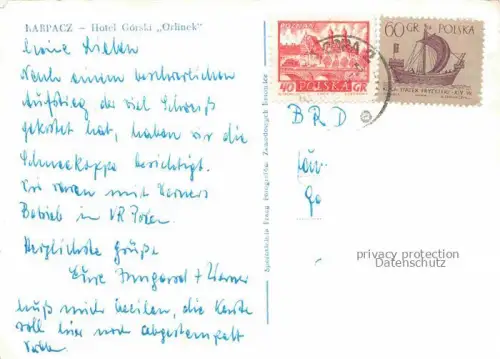 KARPACZ – Hotel Górski „Orlinek"
Meine Lieben
Nach einem beschwerlichen
Aufstieg der viel Schweiß
gekostet hat, haben wir die
Schneekoppe besichtigt.
Wir waren mit Werners
Betrieb in VR Polen
Herzlichste Grüße
Eure Irmgard + Werner
Muß mich beeilen, die Karte
soll hier noch abgestempelt
POZNAŃ
40 POLSKA GR
60 GR. POLSKA
BRD
privacy protection
Datenschutz